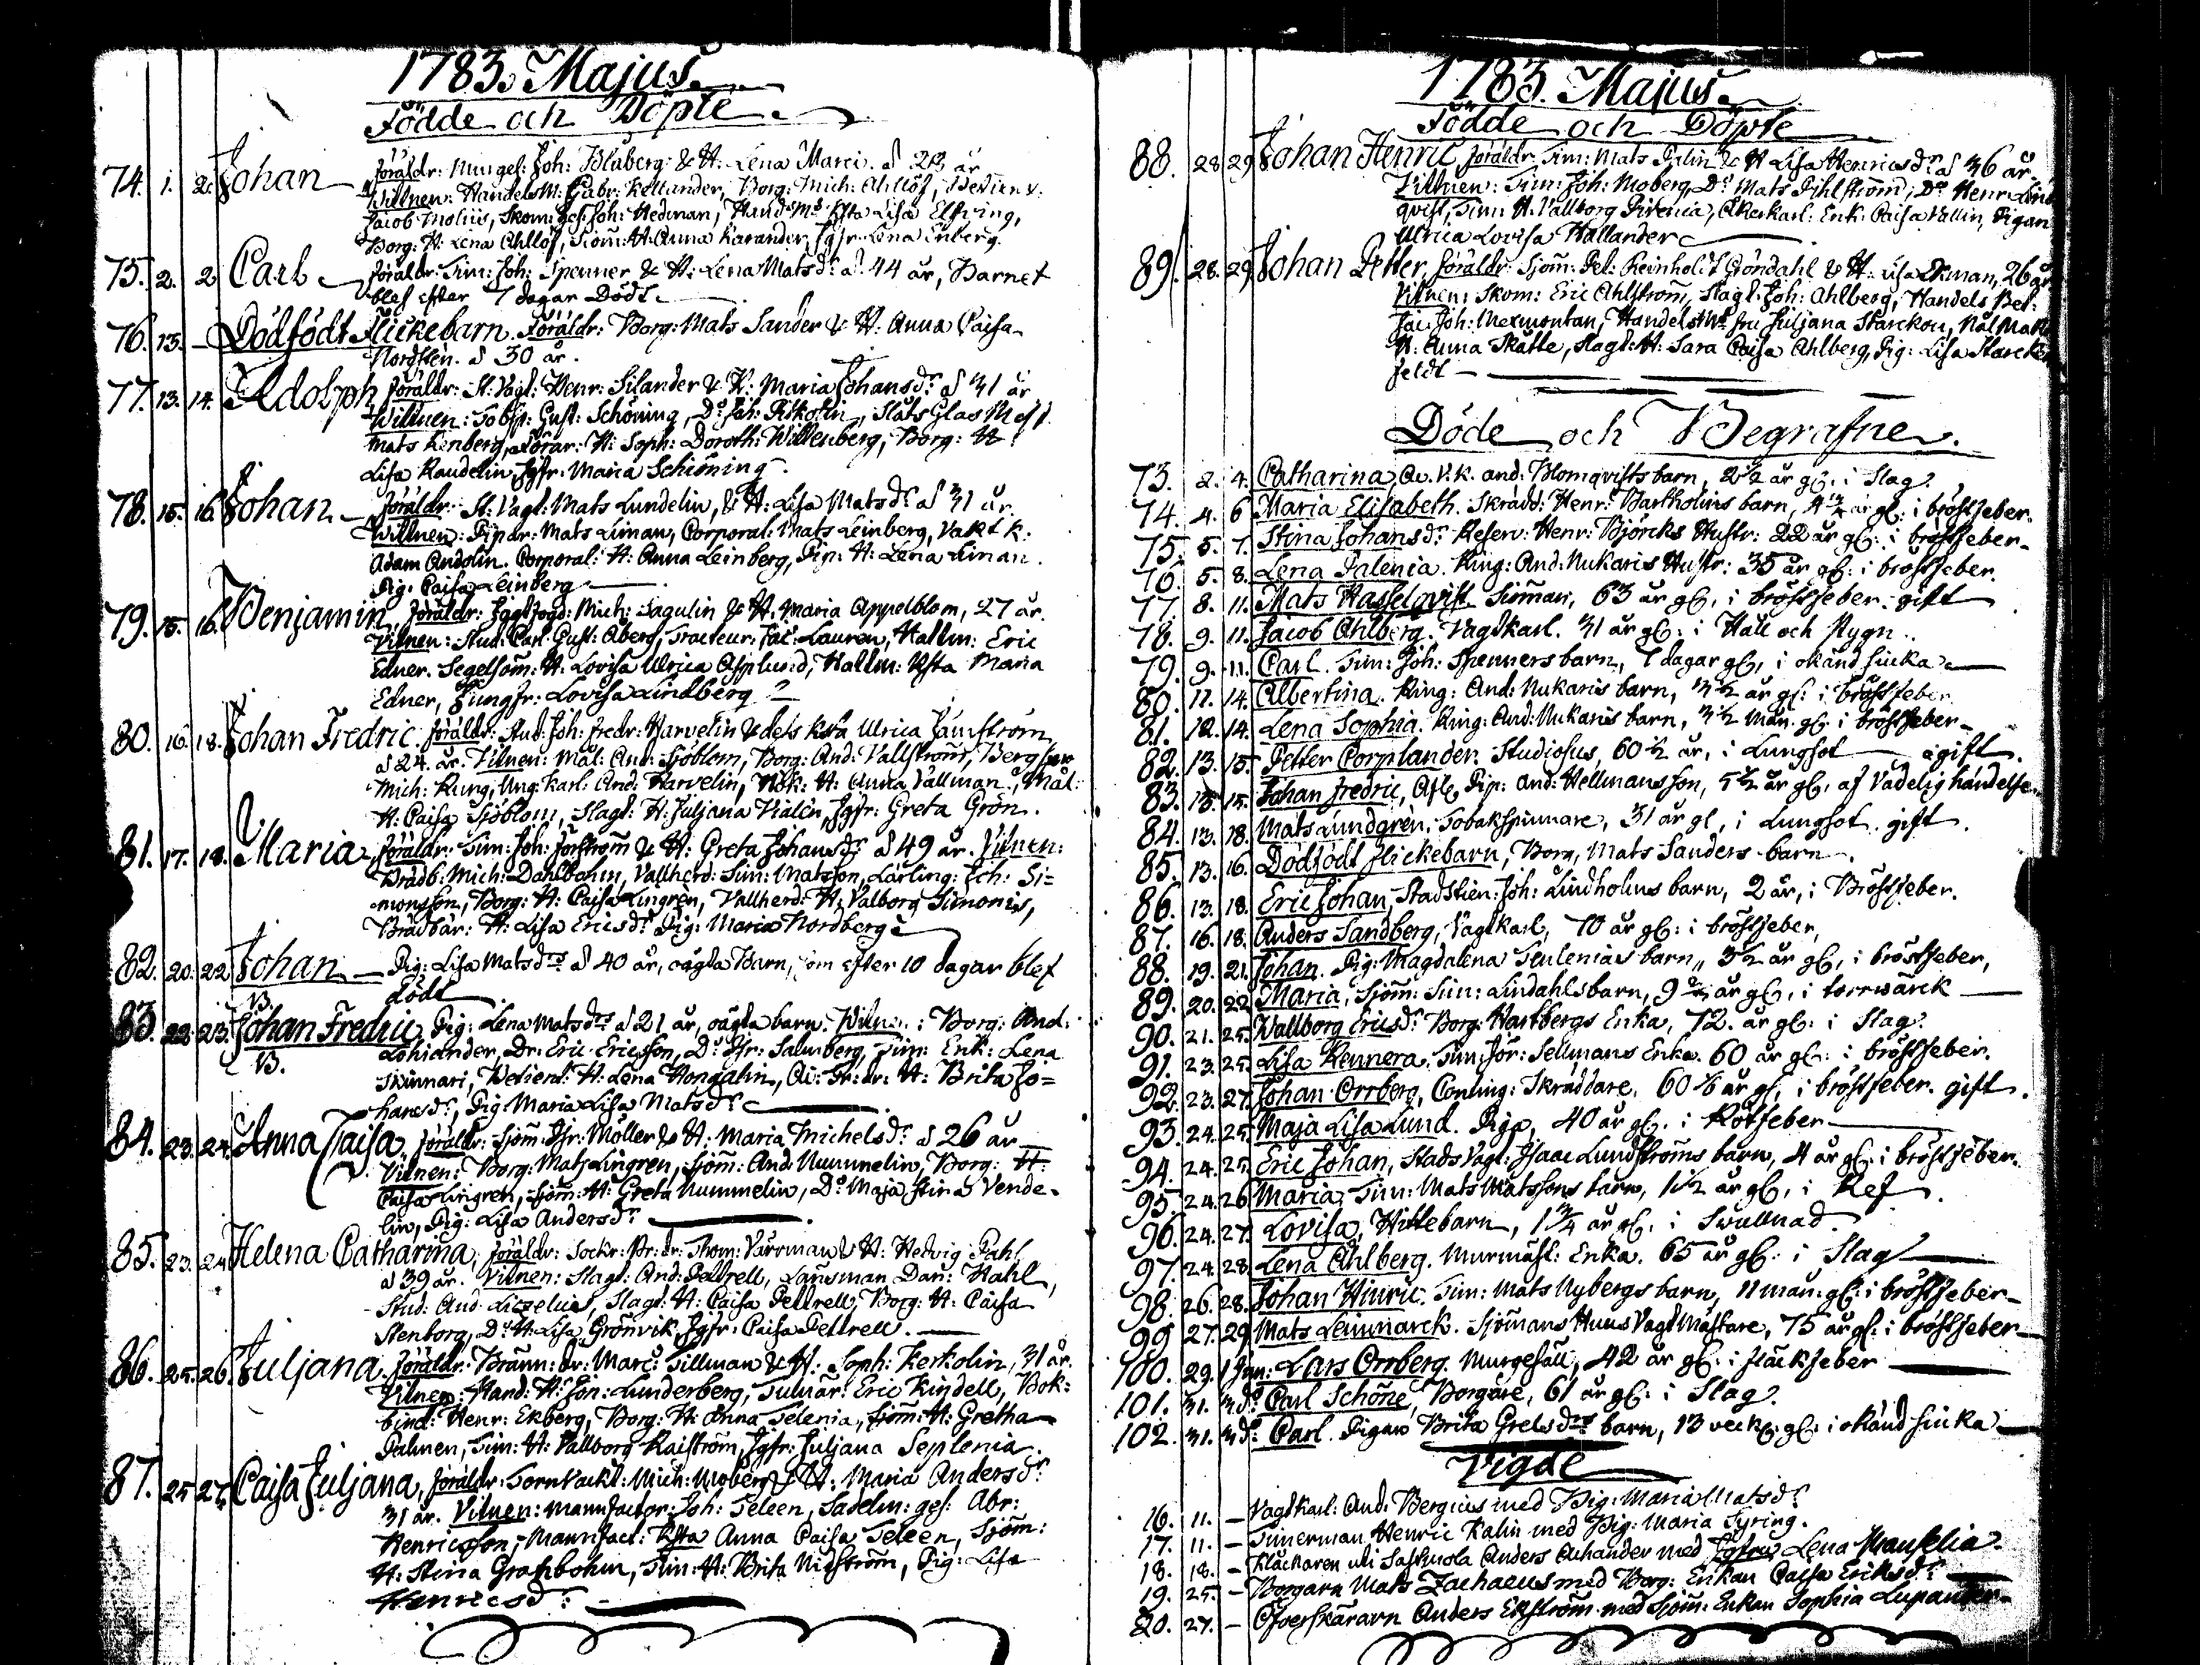 1783. Majus.
Födde och Döpte.
74. 1. 2. Johan Föräldr: Murgel: Joh: Blåberg: & H: Lena Marci. å 23 år
Wittnen: HandelsM: Gabr: Kellander, Borg: Mich: Ahllöf, Betient:
Jacob Molin, Skom: Ges: Joh: Hedman, HandMs Hstr Lisa Elfving,
Borg: H: Lena Ahllöf, Sjöm: H: Anna Karander, Jgfr: Lena Enberg.
75. 2. 2 Carl Föräldr: Tim: Joh: Spenner & H: Lena Matsdr å 44 år, Barnet
blef efter 7 dagar Dödt
76. 13. – Dödfödt Flickebarn. Föräldr: Borg: Mats Sander & H: Anna Caisa
Nordsten. å 30 år.
77. 13. 14. Adolph, Föräldr: St: Vagt: Henr: Silander & H: Maria Johansdr å 31 år
Wittnen: Tobsp: Gust: Schöning, Do Joh: Riskolin, Slåts Glas Mest
Mats Renberg, Förar: H: Soph: Doroth: Wittenberg, Borg: H:
Lisa Randelin, Jgfr: Maria Schiöning.
78. 15. 16. Johan – Föräldr: St: Vagt: Mats Lundelin, & H: Lisa Matsdr å 31 år.
Wittnen: Pipdr: Mats Liman, Corporal: Mats Leinberg, Vakt k:
Adam Andolin. Corporal: H: Anna Leinberg, Pip: H: Lena Liman.
Pig: Caisa Leinberg
79. 15. 16. Benjamin, Föräldr: Mich: Sagulin & H. Maria Appelblom, 27 år.
Vitnen: Stud: Carl Gust: Åberg, Tracteur: Jac: Lauren, Hattm: Eric
Edner. Segelsöm: H: Lovisa Ulrica Asplund, Hattm: Hstr Maria
Edner, Jungfr: Lovisa Lindberg
80. 16. 18. Johan Fredric. Föräldr: Stud: Joh: Fredr: Harvelin & dess k:ra Ulrica Jämström
å 24 år. Vitnen: Mål: And: Sjöblom, Borg: And: Vallström, Bergspr
Mich: Rung, Ung: karl: And: Harvelin, Wök: H: Anna Vallman, Mål:
H: Caisa Sjöblom, Slagt: H: Juljana Vialén, Jgfr: Greta Grön.
81. 17. 18. Maria Föräldr: Tim: Joh: Forström & H: Greta Johansdr å 49 år. Vitnen:
Brädb: Mich: Dahlbohm, Vallherd: Sim: Matsson, Lärling: Joh: Si=
monsson, Borg: H: Caisa Lingren, Vallherd: H: Valborg Simonis,
Brädbär: H: Lisa Ericsdr Pig: Maria Nordberg
82. 20. 22 Johan – Pig: Lisa Matsdrs å 40 år, oägta Barn, som efter 10 dagar blef
Dödt
83. 22. 23. Johan Fredric, Pig: Lena Matsdrs å 21 år, oägta barn. Witnen: Borg: And:
Lohiander, Dr: Eric Ericsson, Do Jfr: Salmberg, Tim: Enk: Lena
Skinnari, Betient: H: Lena Hongalin, H: Brita Jo=
hansdr, Pig: Maria Lisa Matsdr
84. 23. 24. Anna Caisa, Föräldr: Sjöm: Jfr: Möller & H: Maria Michelsdr å 26 år
Vitnen: Borg: Mats Lingren, Sjöm: And: Nummelin, Borg: H:
Caisa Lingren, Sjöm: H: Greta Nummelin, Do Maja Stina Vende-
lin, Pig: Lisa Andersdr
85. 23. 24. Helena Catharina, Föräldr: Sockr: Br: dr: Thom: Värrman & H: Hedvig Pahl
å 39 år. Vitnen: Slagt: And: Pettrell, Länsman Dan: Hahl,
Stud: And: Lizelius, Slagt: H: Caisa Pettrell, Borg: H: Caisa
Stenborg, Do H: Lisa Grönvik, Jgfr: Caisa Pettrell.
86. 25. 26. Juljana. Föräldr: Bränn: dr: Marc: Tillman & H: Soph: Kerkolin, 31 år.
Vitnen: Hand: M: Jon: Lunderberg, Tulnär: Eric Kindell, Bok:
bind: Henr: Ekberg, Borg: H: Anna Telenia, Sjöm: H: Gretha
Palmen, Tim: H: Vallborg Raiström, Jgfr: Juljana Seplenia.
87. 25 27. Caisa Juljana, Föräldr: Tornvackt: Mich: Moberg & H: Maria Andersdr
31 år. Vitnen: Manufactor: Joh: Teleen, Sadelm: ges: Abr:
Henricsson, Manufact: Hstr Anna Caisa Teleen, Sjöm:
H: Stina Grahbohm, Tim: H: Brita Nitström, Pig: Lisa
Henricsdr
1783. Majus.
Födde och Döpte
88. 28 29 Johan Henric Föräldr: Tim: Mats Pirlin & H Lisa Henricsdr å 36 år.
Vitnen: Tim: Joh: Moberg, Do Mats Pihlström, Do Henr: Lind
qvist, Tim: H: Vallborg Pirlenia, Åkerkarl: Enk: Caisa Vallin, Pigan
Ulrica Lovisa Hallander
89. 28. 29 Johan Petter, Föräldr: Sjöm: Pet: Reinholdt Gröndahl & H: Lisa Ekman, 26 år
Vitnen: Skom: Eric Ahlström, Slagt: Joh: Ahlberg, Handels Bet:
Jac: Joh: Mexmontan, HandelsMs fru Juljana Starckou, Nål Mak
H: Anna Skatte, Slagt: H: Sara Caisa Ahlberg, Pig: Lisa Starcken
feldt
Döde och Begrafne.
73. 2. 4. Catharina, And: Blomqvists barn, 2 1/2 år gl: i Slag.
74. 4. 6 Maria Elisabeth. Skrädd: Henr: Bartholins barn, år gl: i bröstfeber.
75. 5. 7. Stina Johansdr Reserv: Henr: Björcks Hustr: 22 år gl: i bröstfeber.
76. 5. 8. Lena Palenia. Ring: And: Nukaris Hustr: 35 år gl: i bröstfeber.
77. 8. 11. Mats Hasselqvist Timman, 63 år gl, i bröstfeber. gift
78. 9. 11. Jacob Ahlberg. Vagtkarl. 31 år gl: i Håll och Stygn.
79. 9. 11. Carl. Tim: Joh: Spenners barn, 7 dagar gl, i okänd siuka
80. 11. 14. Albertina. Ring: And: Nukaris barn, 3 1/2 år gl: i bröstfeber.
81. 12. 14. Lena Sophia. Ring: And: Nukaris barn, 3 1/2 mån. gl: i bröstfeber
82. 13. 15. Petter Corplander. Studiosus, 60 1/2 år, i Lungsot ogift
83. 13. 15. Johan Fredric, Afl. Pip: And: Hellmans son, 5 1/2 år gl, af Vådelig händelse.
84. 13. 18. Mats Lundgren. Tobakspinnare, 31 år gl, i Lungsot. gift.
85. 13. 16. Dödfödt flickebarn, Borg, Mats Sanders barn.
86. 13. 18. Eric Johan, Stadstien: Joh: Lindholms barn, 2 år, i Bröstfeber.
87. 16. 18. Anders Sandberg, Vagtkarl, 70 år gl: i bröstfeber,
88. 19. 21. Johan. Pig: Magdalena Teulenias barn, 3 1/2 år gl, i bröstfeber,
89. 20. 22 Maria, Sjöm: Sim: Lindahls barn, år gl, i torrwärck
90. 21. 25. Wallborg Ericsdr Borg: Hartbergs Enka, 72. år gl: i Slag.
91. 23. 25 Lisa Rennera. Tim: Jör: Sellmans Enka. 60 år gl: i bröstfeber.
92. 23. 27. Johan Orrberg, Conting: Skräddare. år gl, i bröstfeber. gift.
93. 24. 25 Maja Lisa Lund. Piga, 40 år gl. i Rötfeber
94. 24. 25 Eric Johan, Stads Vagt: Isaac Lundströms barn, 4 år gl: i bröstfeber.
95. 24. 26 Maria. Tim: Mats Matssons barn, 1 1/2 år gl, i Ref.
96. 24. 27. Lovisa, Hittebarn, 1 3/4 år gl. i Swullnad.
97. 24. 28. Lena Ahlberg. Murmäst: Enka. 65 år gl: i Slag
98. 26. 28. Johan Hinric. Tim: Mats Nybergs barn, 11 mån: gl: i bröstfeber
99. 27. 29 Mats Lennmarck. Sjömans Huus Vagt Mästare, 75 år gl: i bröstfeber
100. 29. 1 Jun: Lars Orrberg. Murgesäll, 42 år gl: i fläckfeber
101. 31. 3 do Carl Schöne, Borgare, 61 år gl: i Slag.
102. 31. 3 do Carl. Pigan Brita Grelsdrs barn, 13 veck: gl: i okänd siuka
Vigde
16. 11. – Vagtkarl: And: Bergius med Pig: Maria Matsdr
17. 11. – Timerman Henric Kalin med Pig: Maria Syring.
18. 18. – Klåckaren uti Sastmola Anders Achander med Jgfru Lena Manselia.
19. 25. – Borgarn Mats Zachaeus med Borg: Enkan Caisa Ericsdr
20. 27. – Öfverskärarn Anders Ekström med Sjöm: Enkan Sophia Lupander